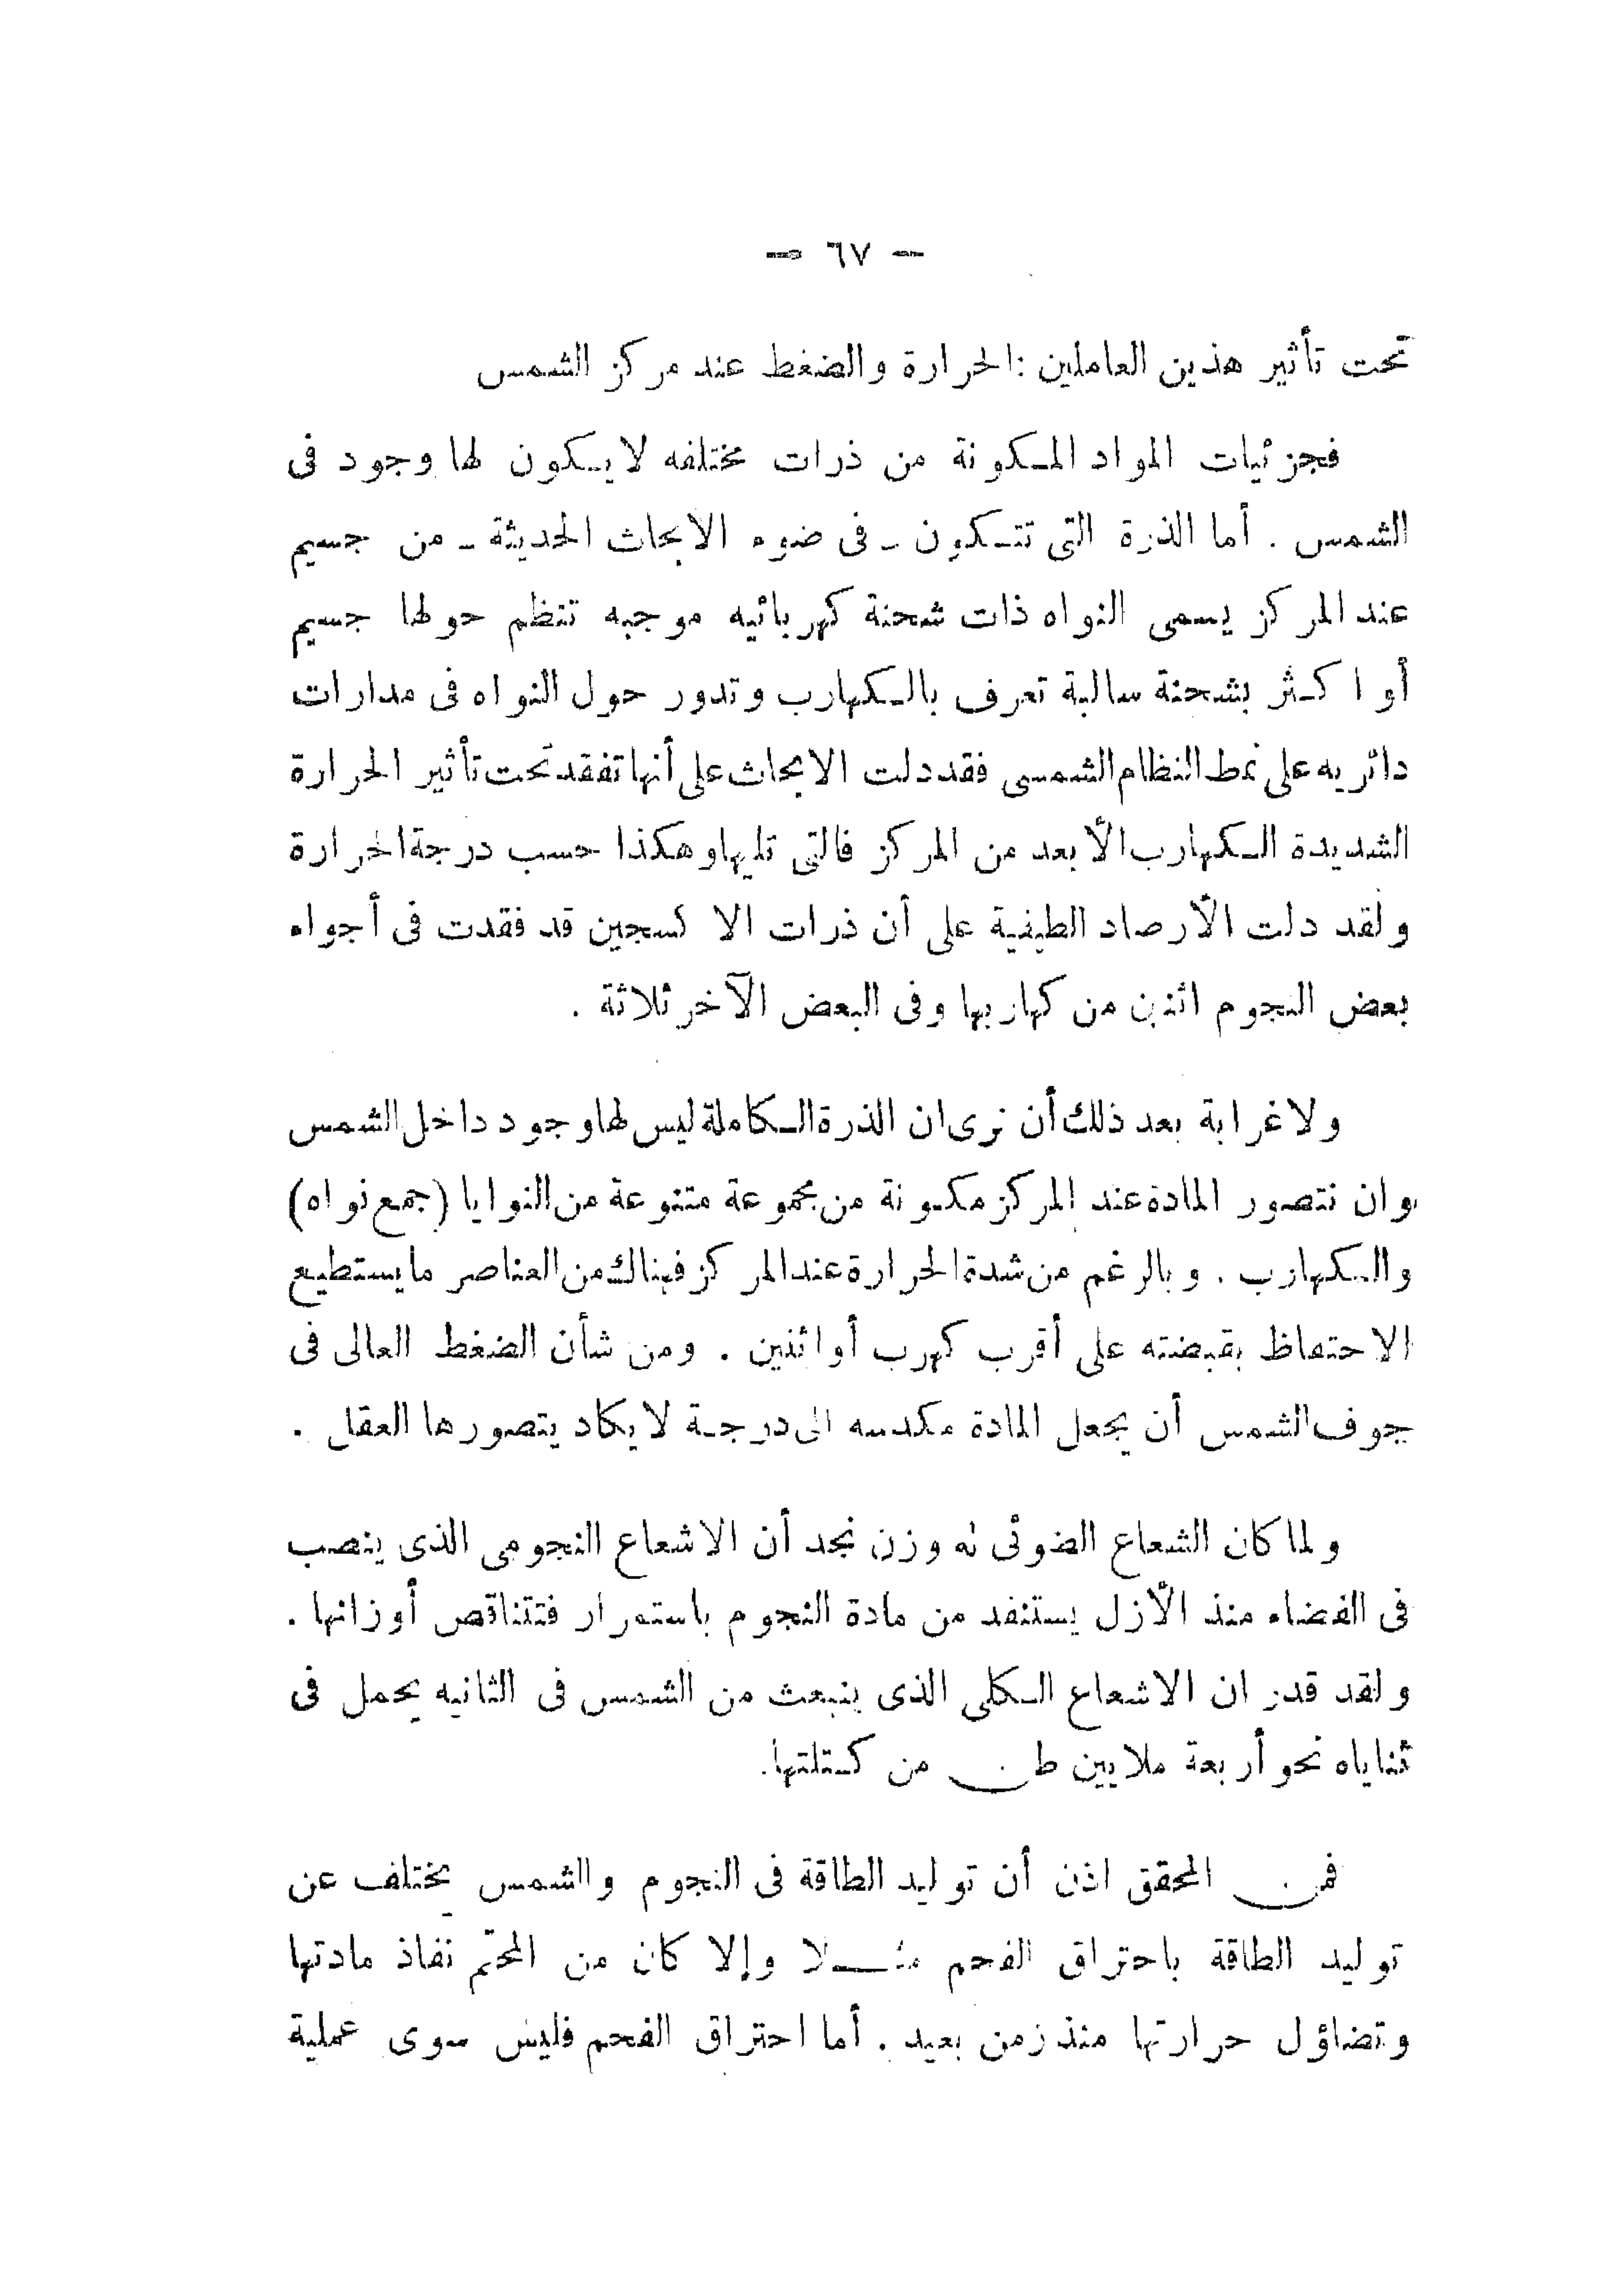 — ٦٧ —
تحت تأثير هذين العاملين : الحرارة والضغط عند مركز الشمس
فجزئيات المواد المكونة من ذرات مختلفه لا يكون لها وجود فى
الشمس . أما الذرة التى تتكون ـ فى ضوء الابحاث الحديثة ـ من جسيم
عند المركز يسمى النواه ذات شحنة كهربائيه موجبه تنظم حولها جسيم
أو اكثر بشحنة سالبة تعرف بالكهارب وتدور حول النواه فى مدارات
دائريه على نمط النظام الشمسى فقد دلت الابحاث على أنها تفقد تحت تأثير الحرارة
الشديدة الكهارب الأبعد من المركز فالتى تليها وهكذا حسب درجة الحرارة
ولقد دلت الأرصاد الطيفية على أن ذرات الاكسجين قد فقدت فى أجواء
بعض النجوم اثنين من كهاربها وفى البعض الآخر ثلاثة .
ولا غرابة بعد ذلك أن نرى ان الذرة الكاملة ليس لها وجود داخل الشمس
وان نتصور المادة عند المركز مكونة من مجموعة متنوعة من النوايا (جمع نواه)
والكهارب . وبالرغم من شدة الحرارة عند المركز فهناك من العناصر ما يستطيع
الاحتفاظ بقبضته على أقرب كهرب أو اثنين . ومن شأن الضغط العالى فى
جوف الشمس أن يجعل المادة مكدسه الى درجة لا يكاد يتصورها العقل .
ولما كان الشعاع الضوئى له وزن نجد أن الاشعاع النجومى الذى ينصب
فى الفضاء منذ الأزل يستنفد من مادة النجوم باستمرار فتتناقص أوزانها .
ولقد قدر ان الاشعاع الكلى الذى ينبعث من الشمس فى الثانيه يحمل فى
ثناياه نحو أربعة ملايين طن من كتلتها .
فمن المحقق اذن أن توليد الطاقة فى النجوم والشمس يختلف عن
توليد الطاقة باحتراق الفحم مثلا وإلا كان من المحتم نفاذ مادتها
وتضاؤل حرارتها منذ زمن بعيد . أما احتراق الفحم فليس سوى عملية